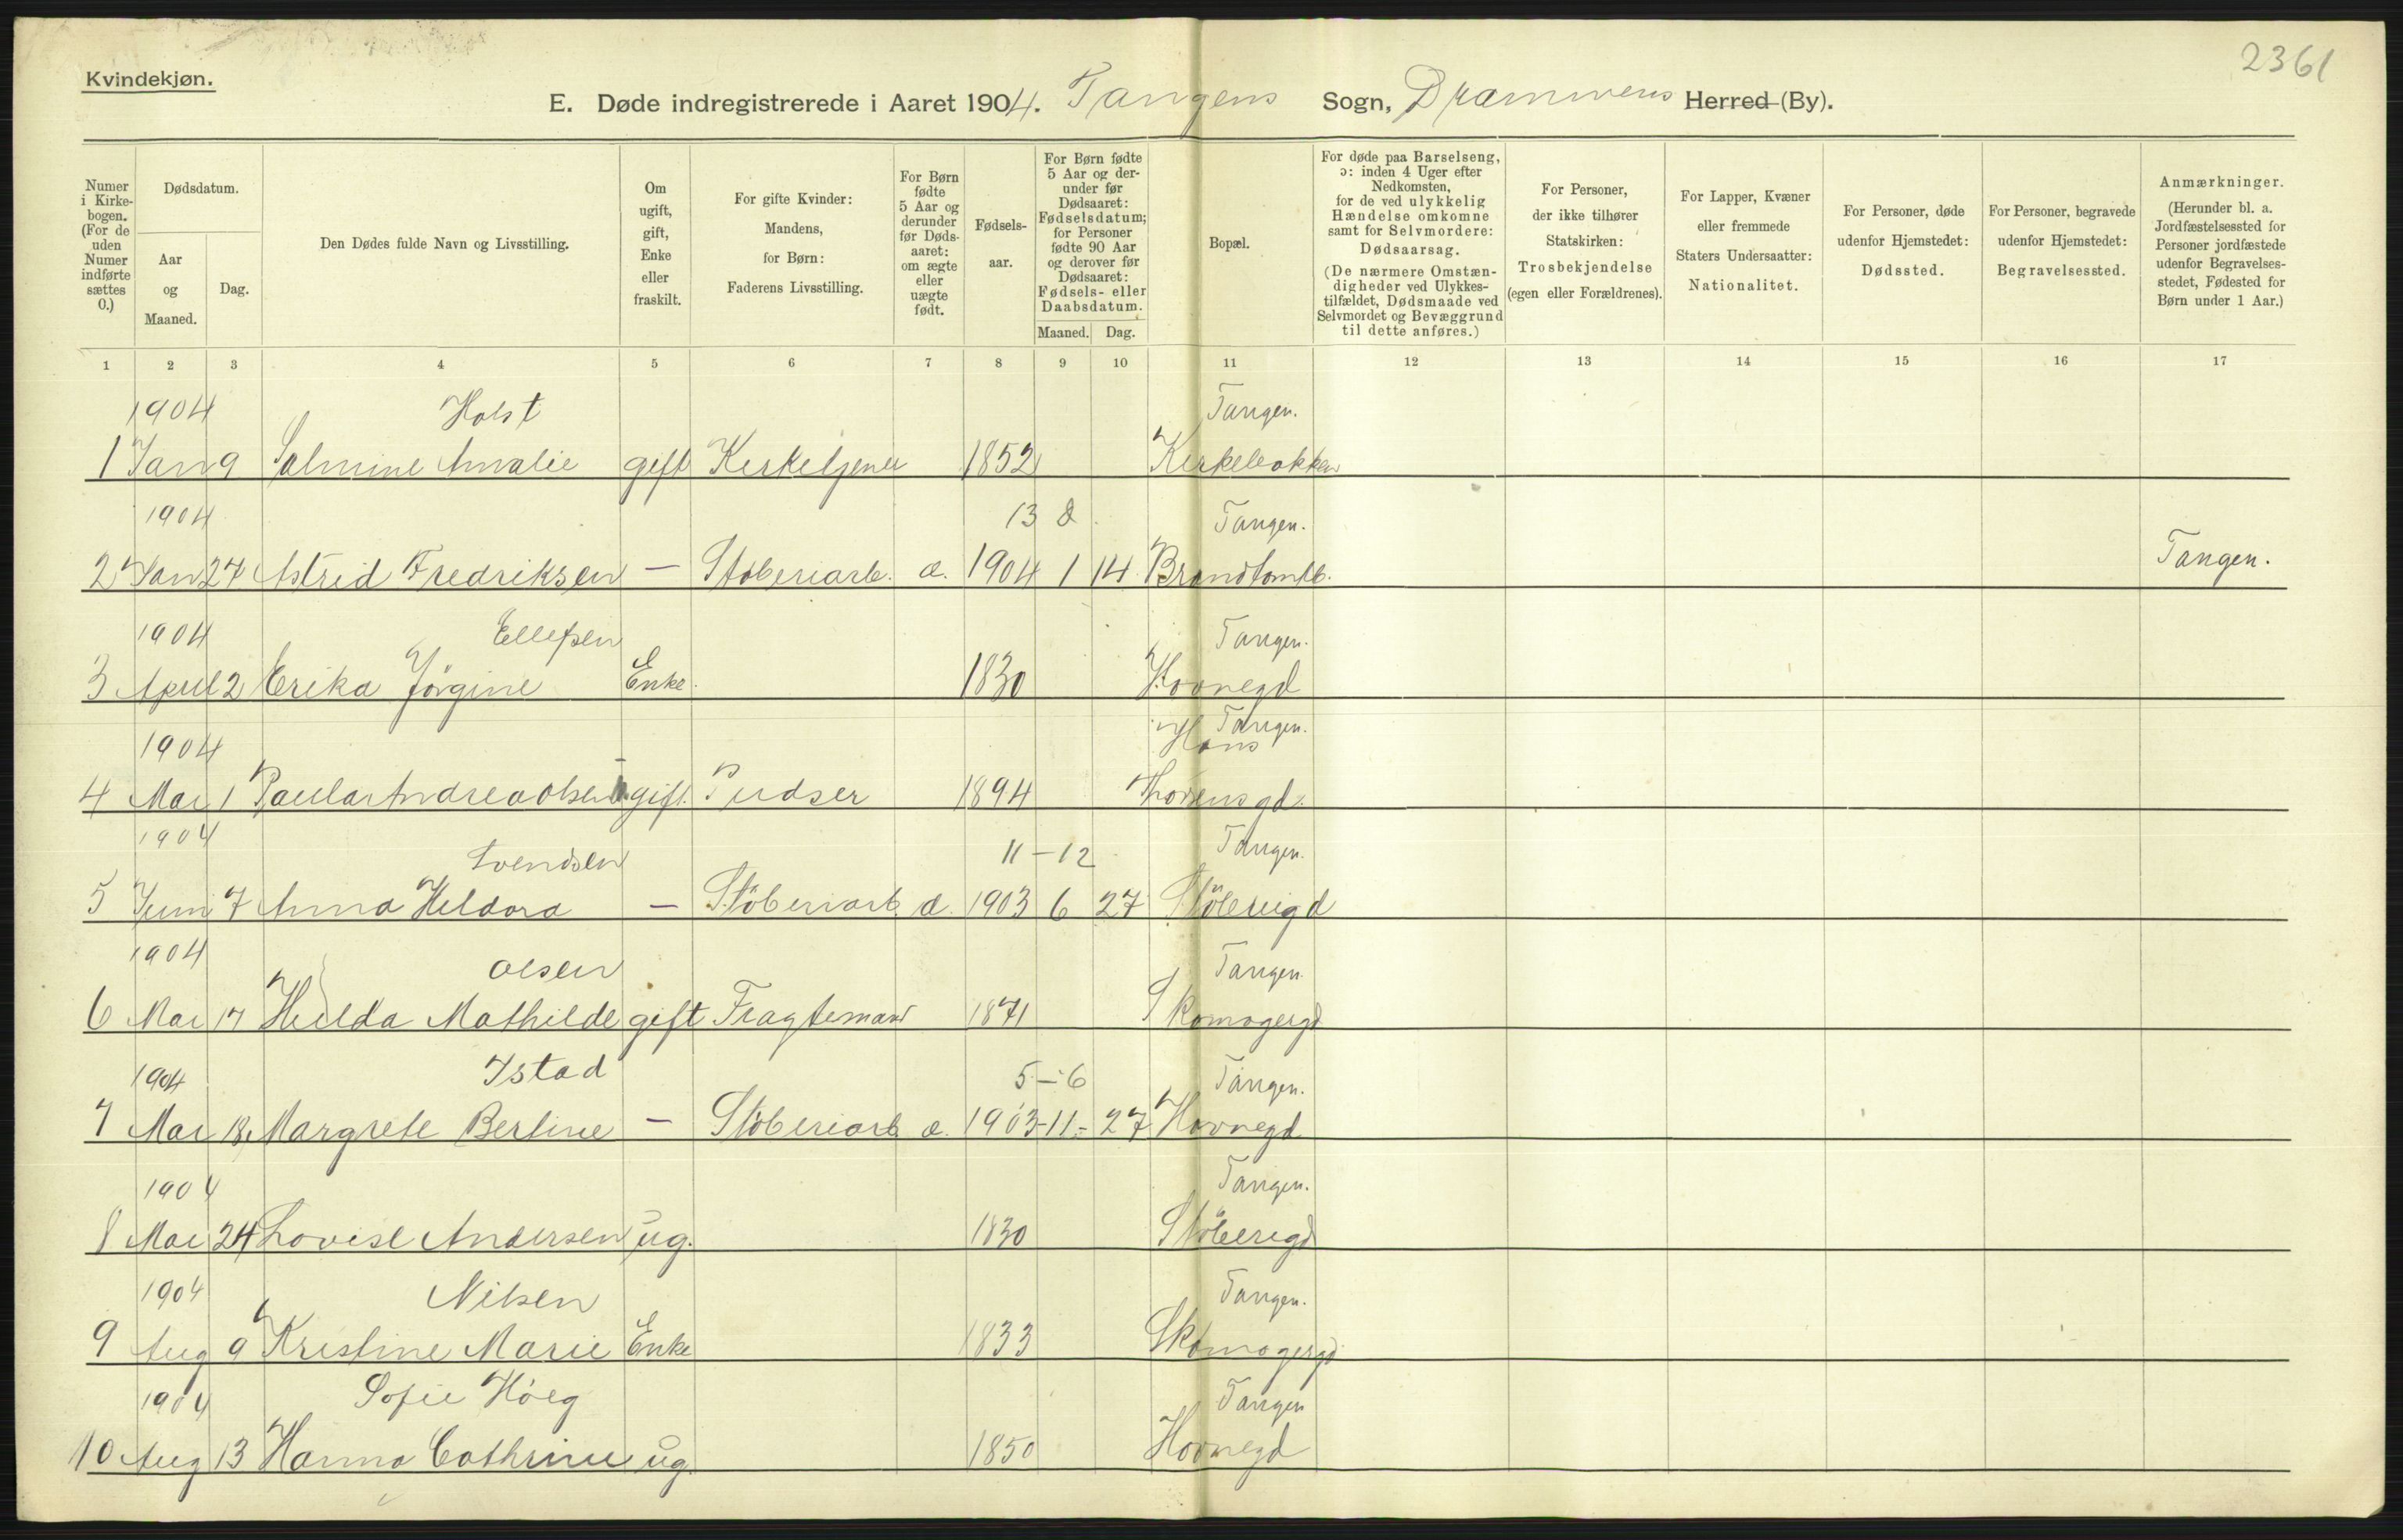 2361
Kvindekjøn.
E. Døde indregistrerede i Aaret 1904. Tangens Sogn, Drammens Herred (By).
Numer i Kirkebogen. (For de uden Numer indførte sættes 0.)
Dødsdatum.
Aar og Maaned.
Dag.
Den Dødes fulde Navn og Livsstilling.
Om ugift, gift, Enke eller fraskilt.
For gifte Kvinder: Mandens, for Børn: Faderens Livsstilling.
For Børn fødte 5 Aar og derunder før Dødsaaret: om ægte eller uægte født.
Fødselsaar.
For Børn fødte 5 Aar og derunder før Dødsaaret: Fødselsdatum; for Personer fødte 90 Aar og derover før Dødsaaret: Fødsels- eller Daabsdatum.
Maaned. Dag.
Bopæl.
For døde paa Barselseng, ɔ: inden 4 Uger efter Nedkomsten, for de ved ulykkelig Hændelse omkomne samt for Selvmordere: Dødsaarsag. (De nærmere Omstændigheder ved Ulykkestilfældet, Dødsmaade ved Selvmordet og Bevæggrund til dette anføres.)
For Personer, der ikke tilhører Statskirken: Trosbekjendelse (egen eller Forældrenes).
For Lapper, Kvæner eller fremmede Staters Undersaatter: Nationalitet.
For Personer, døde udenfor Hjemstedet: Dødssted.
For Personer, begravede udenfor Hjemstedet: Begravelsessted.
Anmærkninger. (Herunder bl. a. Jordfæstelsessted for Personer jordfæstede udenfor Begravelsesstedet, Fødested for Børn under 1 Aar.)
1 2 3 4 5 6 7 8 9 10 11 12 13 14 15 16 17
1904 Holst Tangen.
1 Jan 9 Salmine Amalie gift Kirketjener 1852 Kirkebakken
1904 13 d. Tangen.
2 Jan 27 Astrid Fredriksen — Støberiarb. æ. 1904 1 14 Tangen.
1904 Ellefsen Tangen.
3 April 2 Erika Jörgine Enke. 1830 Havnegd
1904 Tangen. Hans
4 Mai 1 Paula Andrea Olsen ugift. Pudser 1894
1904 Svendsen 11 – 12 Tangen.
5 Juni 7 Anna Heldora — Stöberiarb æ. 1903 6 27 Stöberigd
1904 Olsen Tangen.
6 Mai 17 Hulda Mathilde gift Fragtemand 1871 Skomagergd
1904 Istad 5 – 6 Tangen.
7 Mai 18. Margrete Bertine — Stöberiarb æ. 1903 - 11 - 27 Havnegd
1904 Tangen.
8 Mai 24 Lovise Andersen ug. 1830 Stöberigd
1904 Nilsen Tangen.
9 Aug 9 Kristine Marie Enke 1833 Skomagergd
1904 Sofie Höeg Tangen
10 Aug 13 Hanna Cathrine ug. 1850 Havnegd